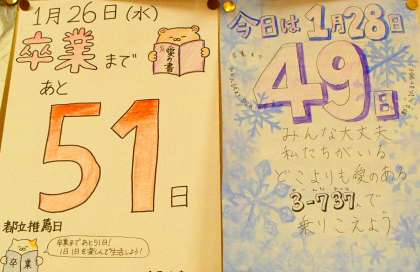 1月26日(水)
卒業まで
愛の書
あと
51日
都立推薦日
卒業まであと51日!
1日1日を楽しんで生活しよう!
卒業
今日は1月28日
卒業まで
49日
みんな大丈夫
私たちがいる
どこよりも愛のある
3-737んで
乗りこえよう